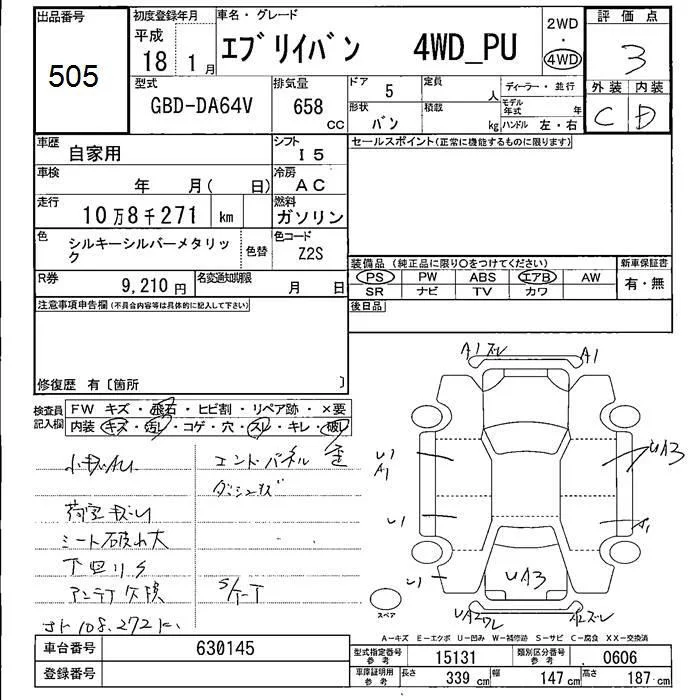 出品番号 初度登録年月 車名・グレード 2WD 評価点
505 平成 18 1月 エブリイバン 4WD_PU ・ 4WD 3
型式 GBD-DA64V 排気量 658 CC ドア 5 定員 人 ディーラー・並行 外装 内装
形状 バン 積載 kg モデル年式 年 ハンドル 左・右 C D
車歴 自家用 シフト I5 セールスポイント(正常に機能するものに限ります)
車検 年 月( 日) 冷房 AC
走行 10万8千271 km 燃料 ガソリン
色 シルキーシルバーメタリック 色替 色コード Z2S
装備品(純正品に限り○をつけてください) 新車保証書
PS PW ABS エアB AW 有・無
SR ナビ TV カワ
R券 9,210円 名変通知期限 月 日
後日品
注意事項申告欄(不具合内容等は具体的に記入して下さい)
修復歴 有〔箇所 〕
検査員記入欄 FW キズ・飛石・ヒビ割・リペア跡・×要
内装 キズ・汚レ・コゲ・穴・スレ・キレ・破レ
A1 スレ A1
小キズAU エンドパネル歪
U1 A1 UA3
ダッシュキズ
荷室キズU
U1 A1
シート破れ大
下回りS
U1 UA3
アンテナ欠損 S/T-T
UA2ワレ A2スレ
スペア
108,272
A−キズ E−エクボ U−凹み W−補修跡 S−サビ C−腐食 XX−交換済
車台番号 630145 型式指定番号 参考 15131 類別区分番号 参考 0606
登録番号 車庫証明用 参考 長さ 339cm 幅 147cm 高さ 187cm